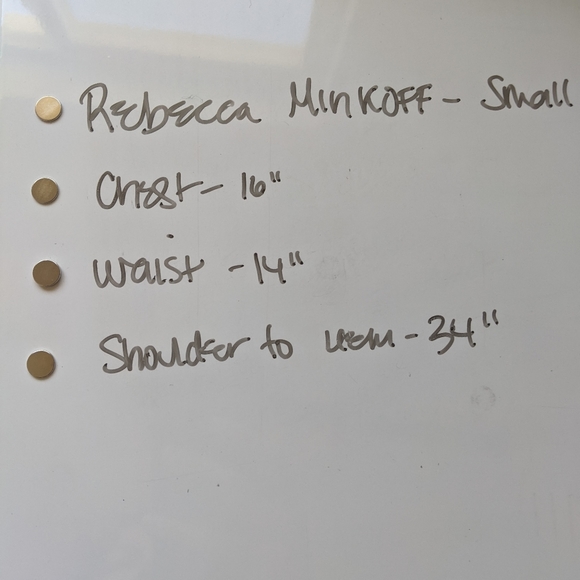 Rebecca Minkoff - Small
Chest - 16"
Waist - 14"
Shoulder to hem - 34"